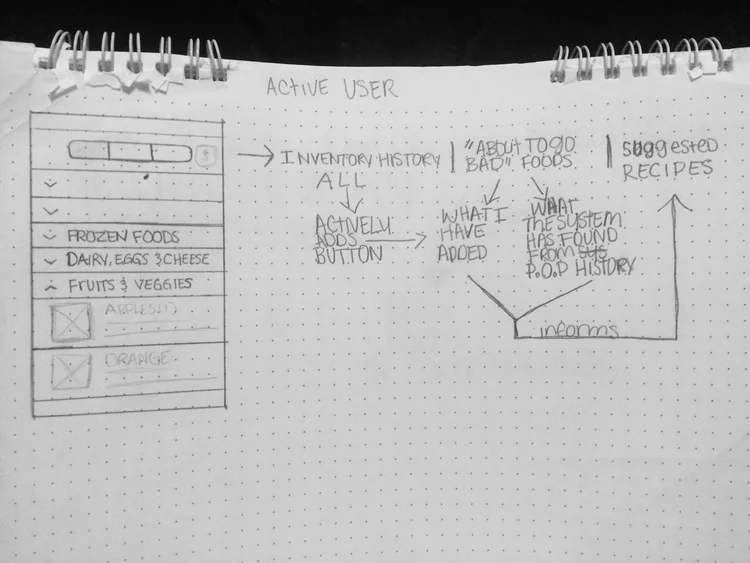 ACTIVE USER
INVENTORY HISTORY
ALL
"ABOUT TO GO
BAD" FOODS.
suggested
RECIPES
ACTIVELY
ADDS
BUTTON
WHAT I
HAVE
ADDED
WHAT
THE SYSTEM
HAS FOUND
FROM
P.O.P HISTORY
informs
FROZEN FOODS
DAIRY, EGGS & CHEESE
FRUITS & VEGGIES
ORANGE